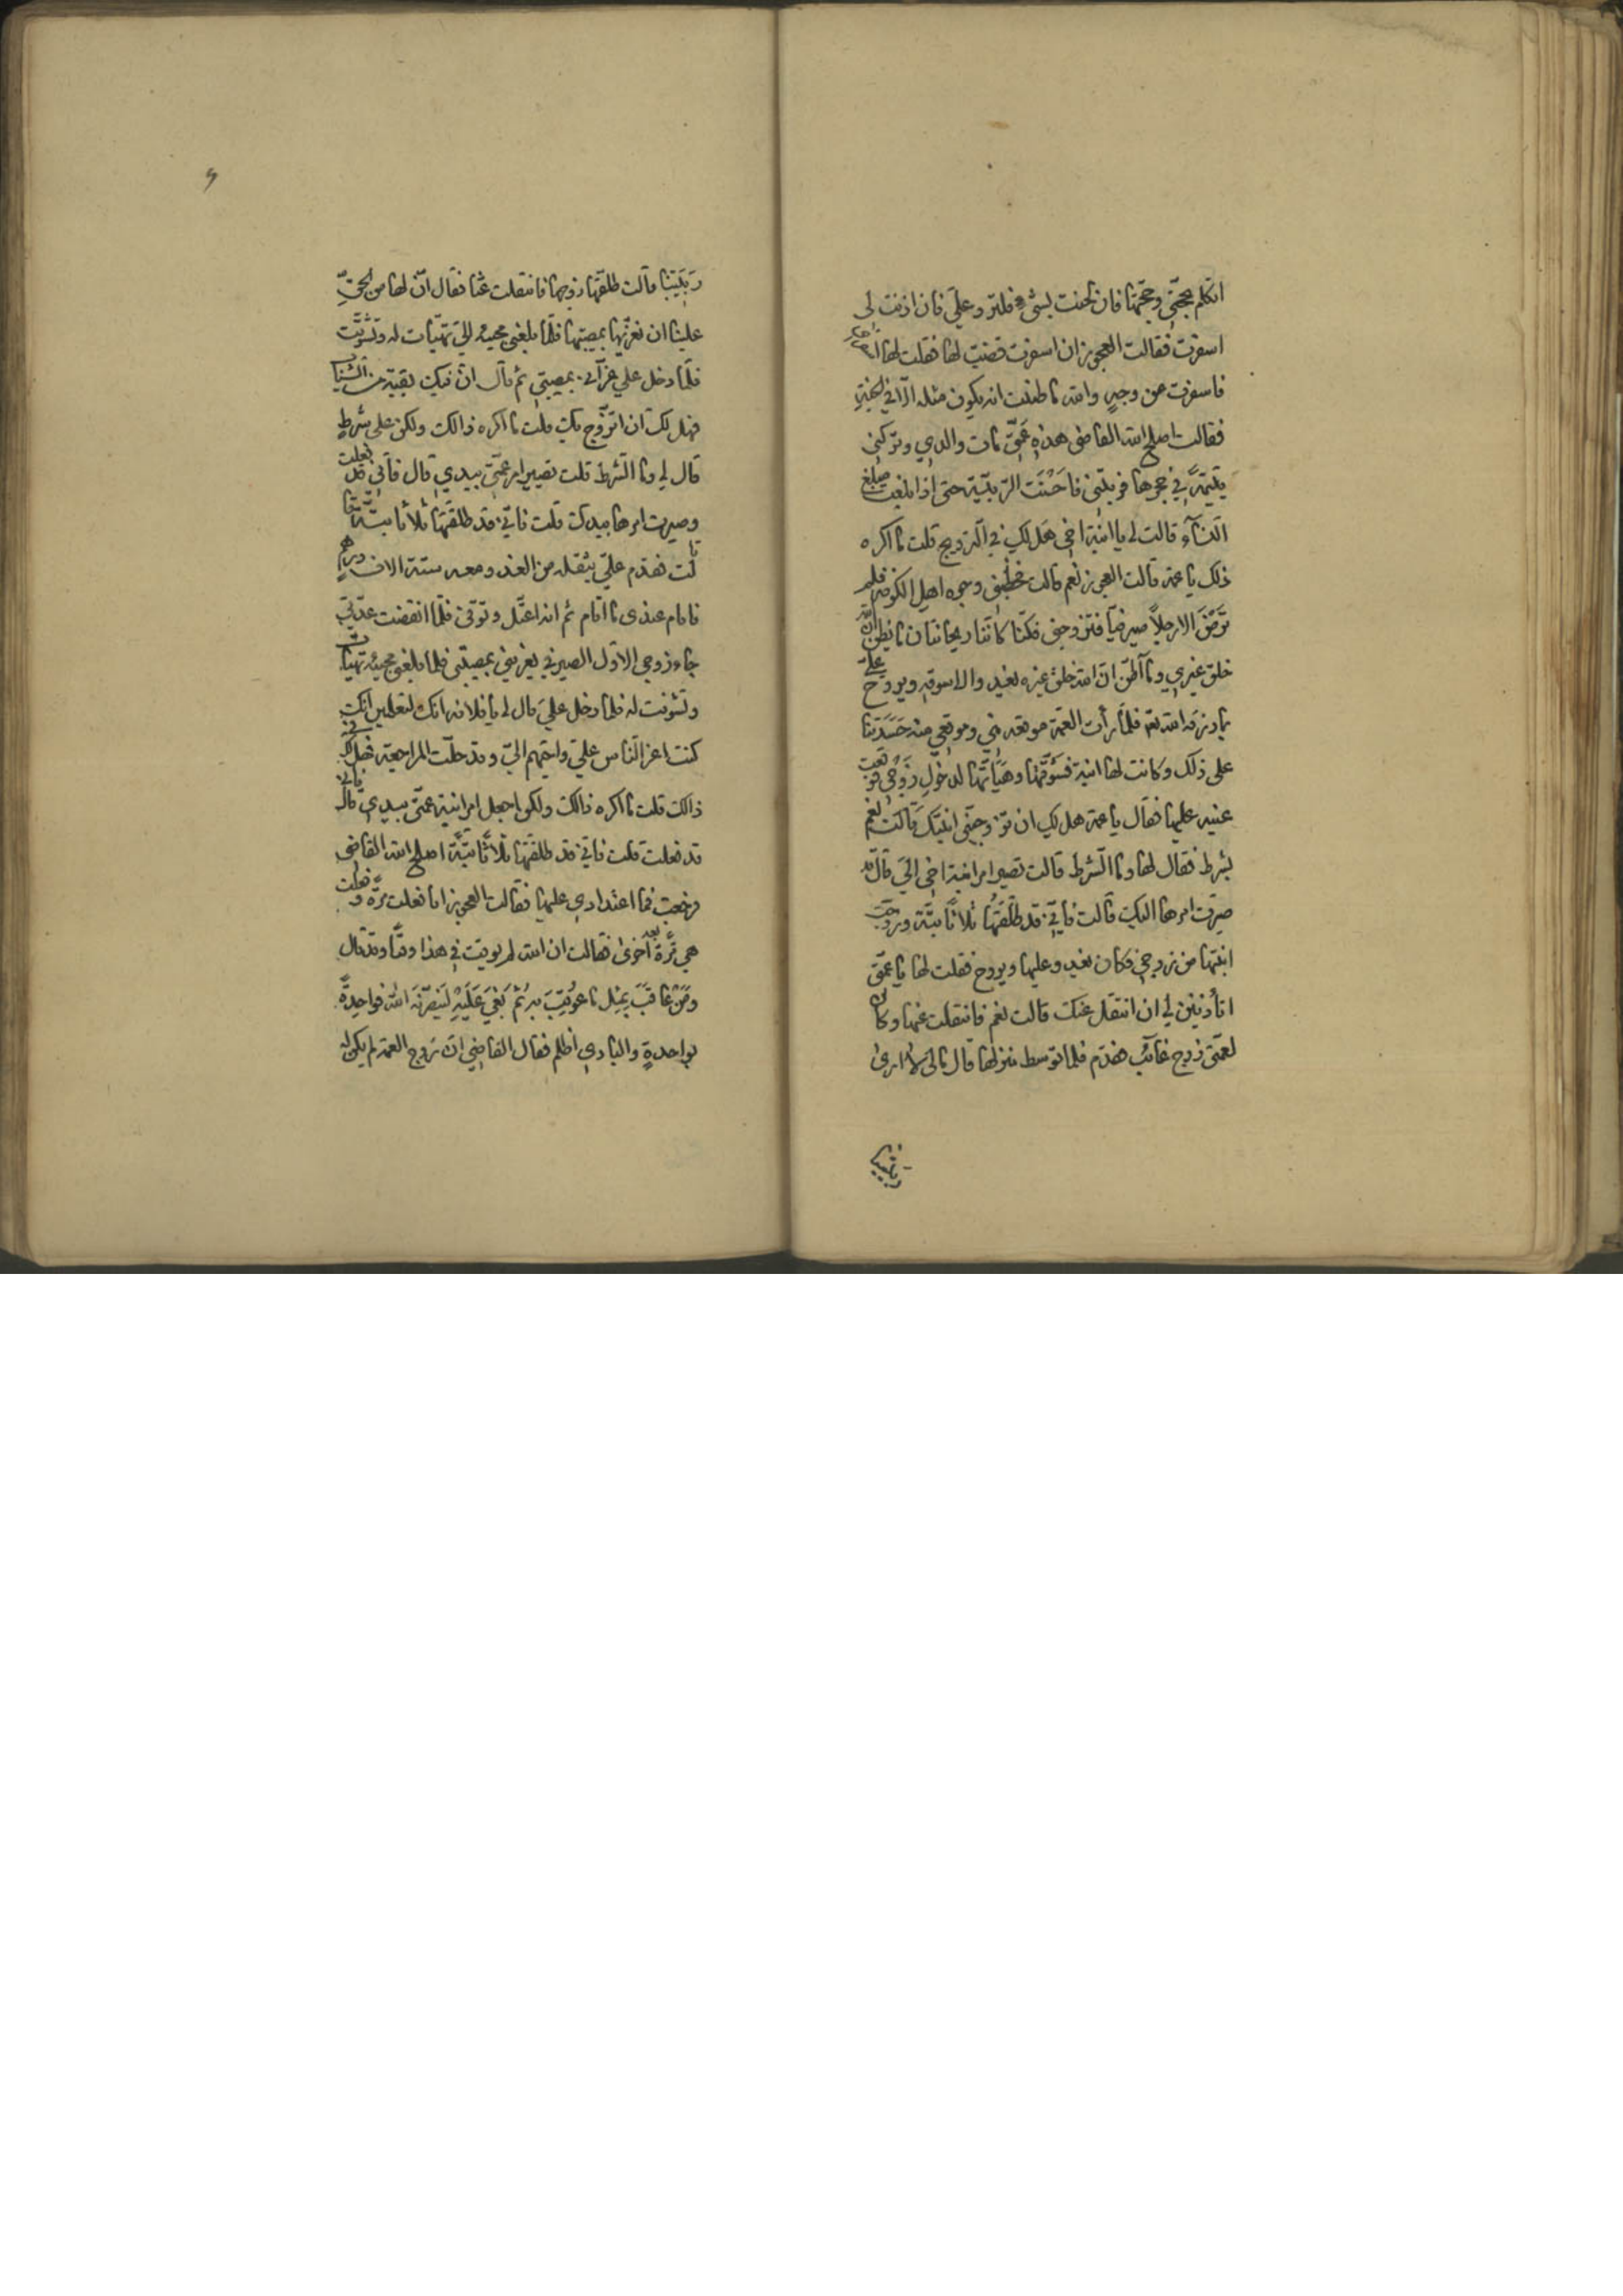 اتكلم بحجتي وحجتها فان لحنت بشئ فلترد علي فان اذنت لى
اسفرت فقالت العجوز ان اسفرت قضيت لها فقلت لها
فاسفرت عن وجه والله ما ظننت انه يكون مثله الا في الجنة
فقالت اصلح الله القاضى هذه عمتي مات والدي وتركني
يتيمة في حجرها فربتني فاحسنت التربية حتى اذا بلغت مبلغ
النساء قالت لي يا ابنة اخي هل لك في التزويج قلت ما اكره
ذلك يا عمة قالت العجوز نعم قالت خطبني وجوه اهل الكوفة فلم
ترض الا رجلاً صيرفيًا فتزوجني فكنا كاننا ريحانتان ما يظن ان الله
خلق غيري وما اظن ان الله خلق غيره يغدو الى سوقه ويروح علي
بما رزقه الله تع فلما رأت العمة موقعه مني وموقعي منه حسدتنا
على ذلك وكانت لها ابنة فسوقتها وهيأتها لدخول زوجي فوقعت
عينه عليها فقال يا عمة هل لك ان تزوجيني ابنتك قالت نعم
بشرط فقال لها وما الشرط قالت تصير امر ابنة اخي الي قال قد
صيرت امرها اليك قالت فاني قد طلقتها ثلاثًا بتة وزوجت
ابنتها من زوجي فكان يغدو عليها ويروح فقلت لها يا عمتي
اتأذنين لي ان انتقل عنك قالت نعم فانتقلت عنها وكان
لعمتي زوج غائب فقدم فلما توسط منزلها قال مالي لا ارى
ربيبتنا
ربيبتنا قالت طلقها زوجها فانتقلت عنا فقال ان لها من الحق
علينا ان نعزيها بمصيبتها فلما بلغني مجيئه الي تهيات له وتشوفت
فلما دخل علي عزاني بمصيبتي ثم قال ان فيك بقية من الشباب
فهل لك ان اتزوج بك قلت ما اكره ذالك ولكن على شرط
قال لي وما الشرط قلت تصيير امر عمتي بيدي قال فاني قد فعلت
وصيرت امرها بيدك قلت فاني قد طلقتها ثلاثًا بتة
قالت فقدم علي بثقله من الغد ومعه ستة الاف درهم
فاقام عندى ما اقام ثم انه اعتل وتوفى فلما انقضت عدتي
جاء زوجي الاول الصيرفي يعزيني بمصيبتي فلما بلغني مجيئه تهيات
وتشوفت له فلما دخل علي قال لي يا فلانه انك لتعلمين انك
كنت اعز الناس علي واحبهم الي وقد حلت المراجعة فهل لك في
ذالك قلت ما اكره ذالك ولكن اجعل امر ابنة عمتي بيدي قال فاني
قد فعلت قلت فاني قد طلقتها ثلاثًا بتة اصلح الله القاضي
فرجعت فما اعتدادي عليها فقالت العجوز انا فعلت مرة وفعلت
هي مرة بعد اخرى فقالت ان الله لم يوقت في هذا وقتًا وقد قال
ومن عاقب بمثل ما عوقب به ثم بغي عليه لينصرنه الله فواحدة
بواحدة والبادي اظلم فقال القاضي ان زوج العمة لم يكن له